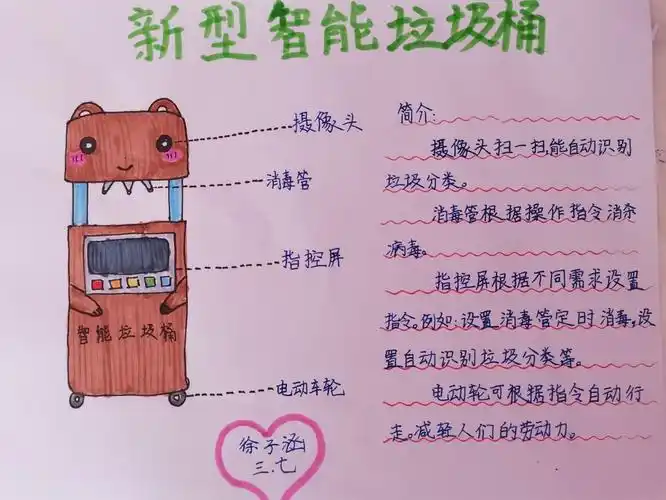 新型智能垃圾桶
摄像头
消毒管
指控屏
智能垃圾桶
电动车轮
徐子涵
三.七
简介:
摄像头扫一扫能自动识别
垃圾分类。
消毒管根据操作指令消杀
病毒。
指控屏根据不同需求设置
指令。例如:设置消毒管定时消毒,设
置自动识别垃圾分类等。
电动轮可根据指令自动行
走。减轻人们的劳动力。